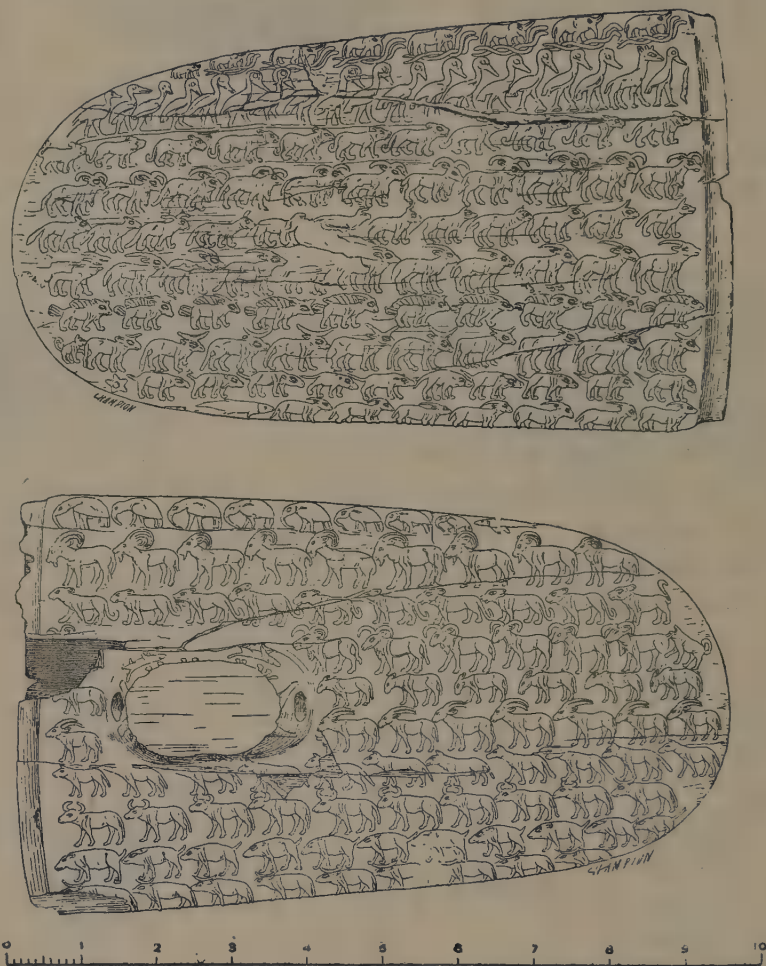 CHAMPION
CHAMPION
0 1 2 3 4 5 6 7 8 9 10